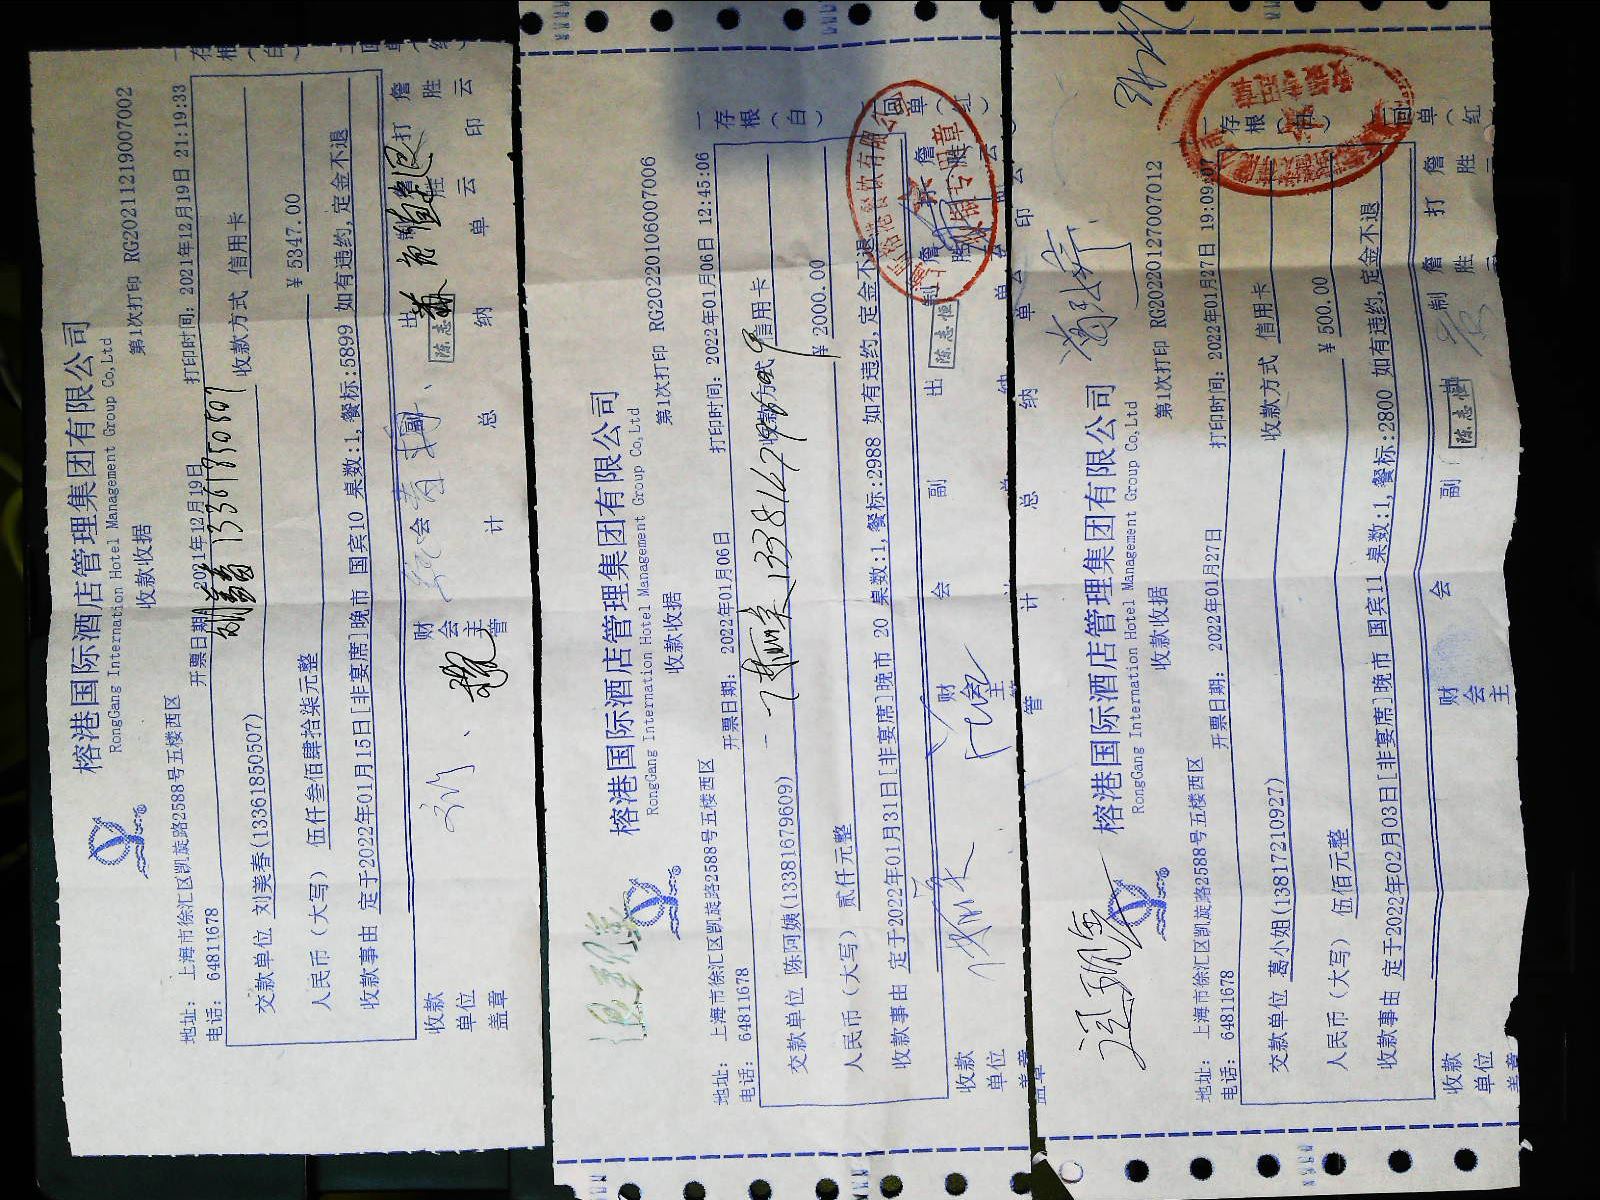 榕港国际酒店管理集团有限公司
RongGang International Hotel Management Group Co,Ltd
收款收据
第1次打印 RG20211219007002
地址： 上海市徐汇区凯旋路2588号五楼西区
电话： 64811678
开票日期 2021年12月19日
打印时间：2021年12月19日 21:19:33
13361850507
交款单位 刘美春(13361850507)
收款方式 信用卡
人民币（大写） 伍仟叁佰肆拾柒元整
￥5347.00
收款事由 定于2022年01月15日[非宴席]晚市 国宾10 桌数:1,餐标:5899 如有违约,定金不退
一存根（白） 二回单（红）
收款单位盖章
财会主管
会计
副总
出纳
陈志恒
制单 詹胜云
打印 詹胜云
榕港国际酒店管理集团有限公司
RongGang International Hotel Management Group Co,Ltd
收款收据
第1次打印 RG20220106007006
地址： 上海市徐汇区凯旋路2588号五楼西区
电话： 64811678
开票日期： 2022年01月06日
打印时间：2022年01月06日 12:45:06
交款单位 陈阿姨(13381679609)
收款方式 信用卡
人民币（大写） 贰仟元整
￥2000.00
收款事由 定于2022年01月31日[非宴席]晚市 20 桌数:1,餐标:2988 如有违约,定金不退
一存根（白） 二回单（红）
收款单位盖章
财会主管
会计
副总
出纳
陈志恒
榕港国际酒店管理集团有限公司
RongGang International Hotel Management Group Co,Ltd
收款收据
第1次打印 RG20220127007012
地址： 上海市徐汇区凯旋路2588号五楼西区
电话： 64811678
开票日期： 2022年01月27日
打印时间：2022年01月27日 19:09:07
交款单位 葛小姐(13817210927)
收款方式 信用卡
人民币（大写） 伍佰元整
￥500.00
收款事由 定于2022年02月03日[非宴席]晚市 国宾11 桌数:1,餐标:2800 如有违约,定金不退
一存根（白） 二回单（红
收款单位
财会主
会
副
陈志恒
制 詹胜云
打 詹胜云